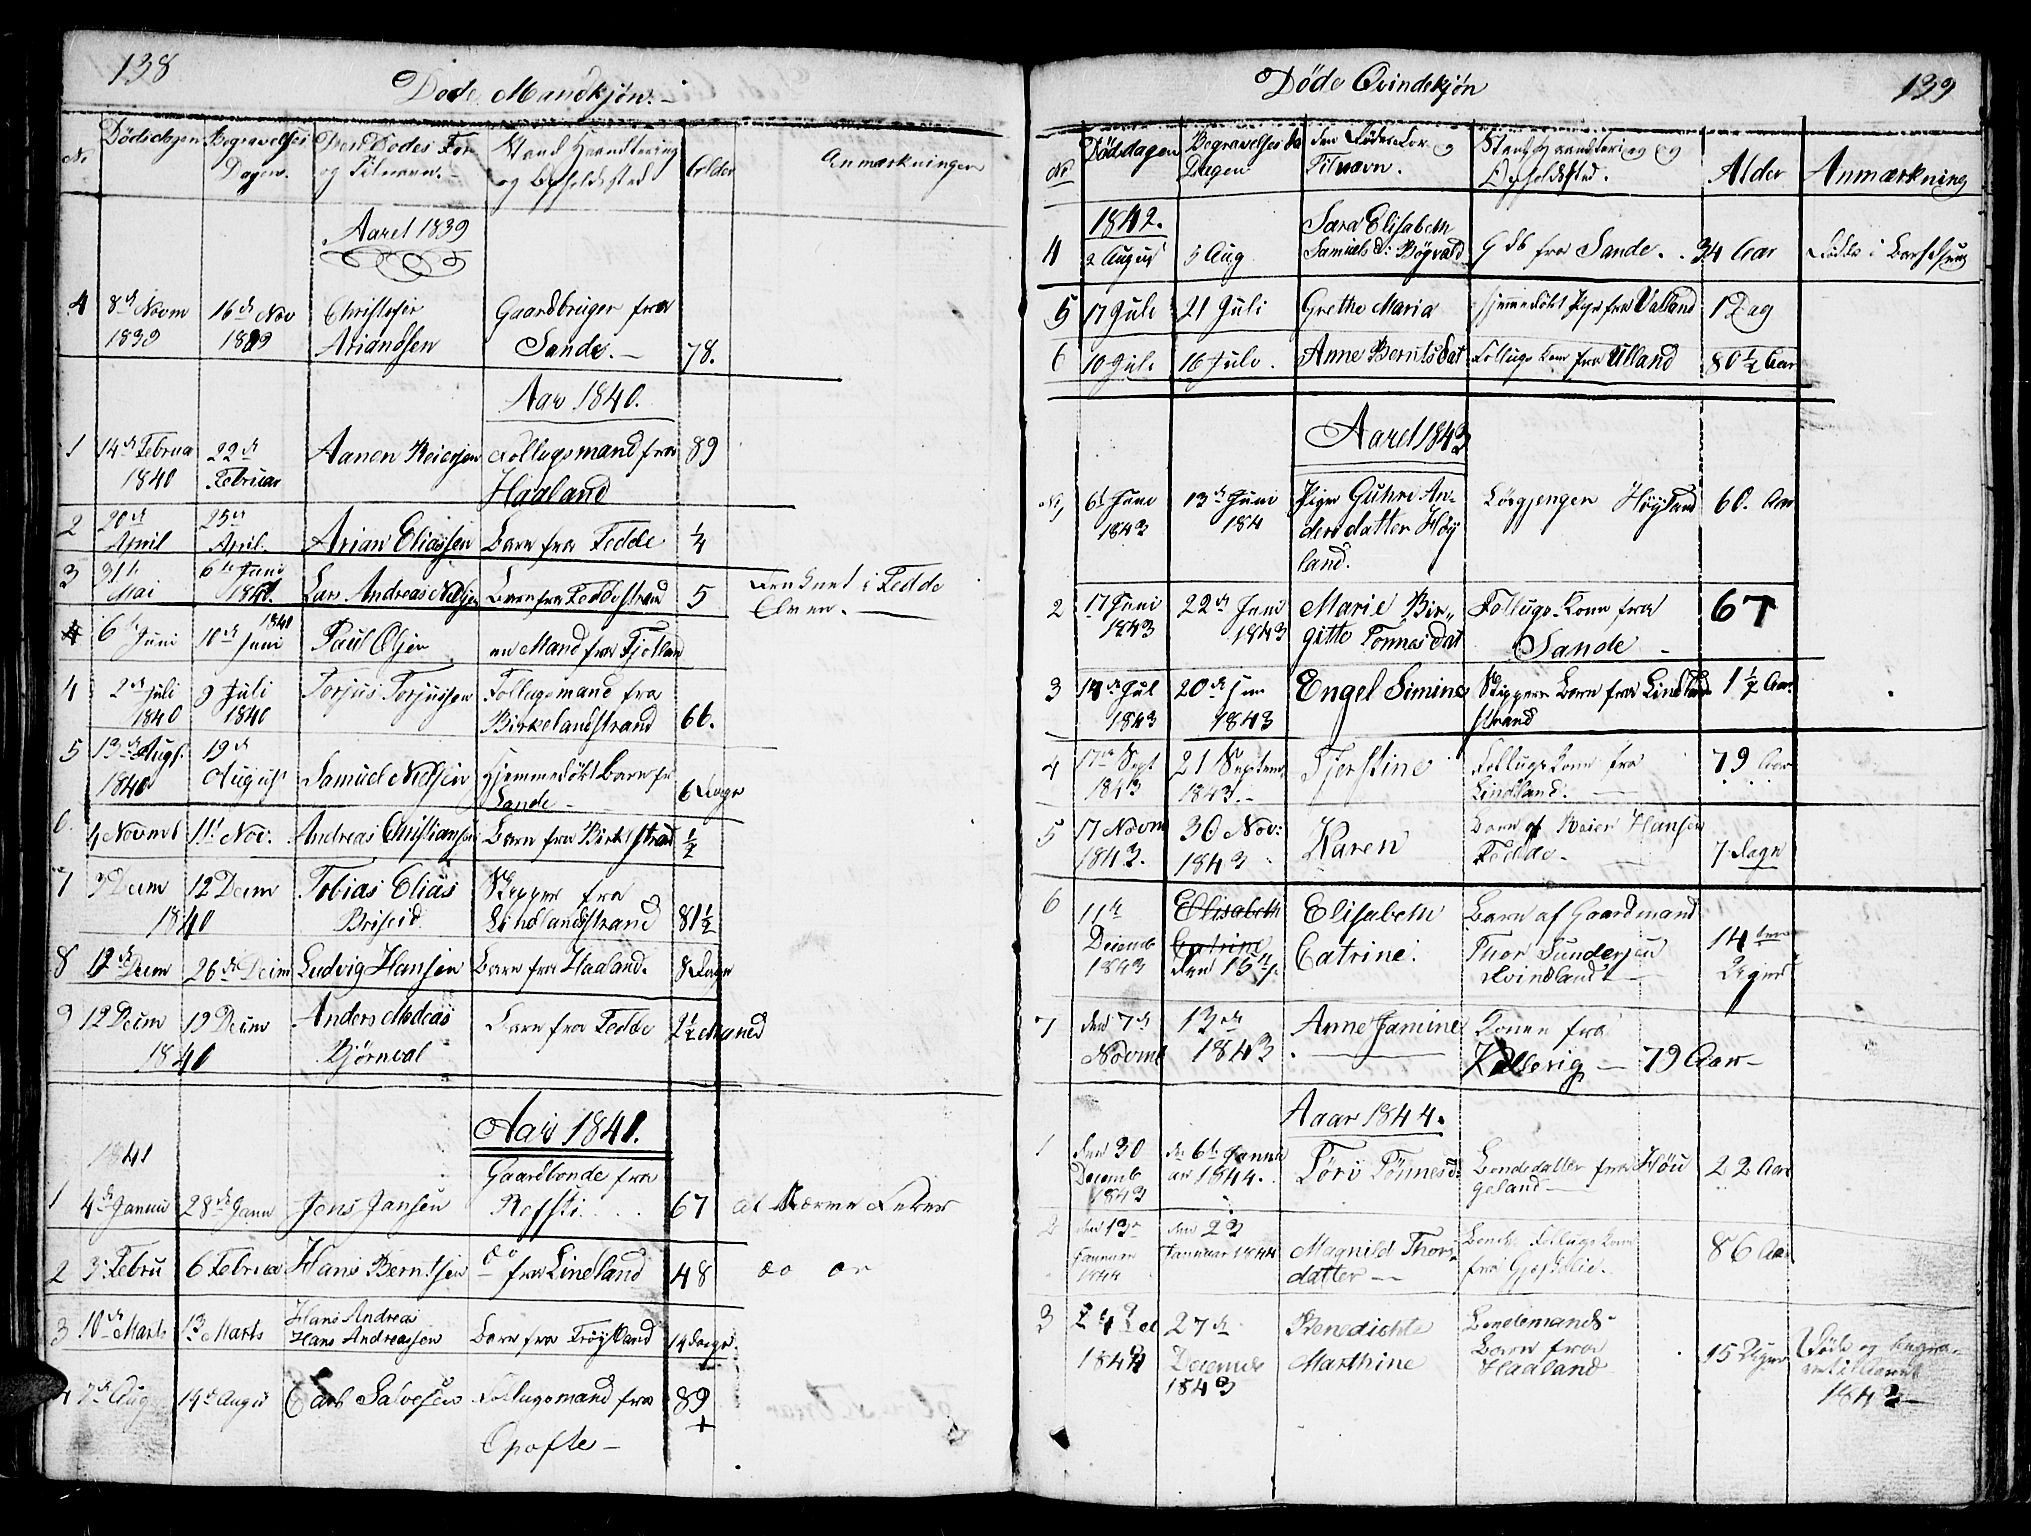 138
Døde Mandkjøn.
No Dødsdagen Begravelses Dagen. Den Dødes For og Tilnavn. Stand Haandtering og Opholdssted Alder Anmærkninger
Aaret 1839
4 8de Novm 1839 16de Nov 1839 Christofer Arianssen Gaardbruger fra Sande. 78.
Aar 1840.
1 14de Februa 1840 22de Februar Aanen Reiersen Follugsmand fra Haaland 89
2 20de April 25de April. Arian Eliassen Barn fra Fedde 1/4
3 31te Mai 6te Juni 1840. Lars Andreas Nilsen Barn fra Feddestrand 5 i Fedde Elven.
6te Juni 10de Juni 1840 Paul Olsen en Mand fra Fjotlan
4 2de Juli 1840 9 Juli 1840 Torjus Torjussen Follugsmand fra Birkelandstrand 66.
5 13de Augs. 1840 19de August Samuel Nielsen Hjemmedøbt Barn fr Sande 6 Dage
6. 4 Novmb 11te Nov: Andreas Christiansen Barn fra Birkl strand 1/2
7 3 Decm 1840 12 Decm Tobias Elias Briseid Skipper fra Lindlandsstrand 81 1/2
8 12de Decm 26de Decm Ludvig Hansen Barn fra Haaland. 8 Dage
9 12 Decm 1840 19 Decm Anders Andeas Bjørneval Barn fra Fedde 2 1/2 Maaned
Aar 1841.
1841
1 4de Januu 28de Janu Jens Jansen Gaardbonde fra Refsti 67 at
2 3. Febru 6 Februa Hans Berntsen do fra Lindland 48 do
3 10de Marts 13 Marts Hans Andrea Hans Andreassen Barn fra Trøjland 14 Dage.
4 7de Aug 14de Augu Carl Salvesen Follugsmand fra Opofte 89
139
Døde Qvindekjøn
No Dødsdagen Begravelses Dagen den Dødes For og Tilnavn. Stand Haandtering og Opholdsted. Alder Anmærkning
1842.
4 2 August 5 Aug Sara Elisabeth Samuels D: Bøgvald G db fra Sande. 34 Aar Døde i Barselseng
5 17 Juli 21 Juli Grethe Maria Hjemmedøbt Pige fra Valland 1 Dag
6 10 Jul. 16 Juli. Anne Berntsdat Follugs Kone fra Ulland 80 1/2 Aar
Aaret 1843
No 1 6t Juni 1843 13de Juni 184 Pige Guhre Andersdatter Høyland. Lægjengen Høyland 60. Aar
2 17 Juni 1843 22de Juni 1843 Marie Birgitte Tønnesdat Follugs Kone fra Sande 67
3 14de Jul 1843 20de 1843 Engel Simine Skippers Barn fra Lindlandstrand 1 1/2 Aar.
4 17de Sept 1843 21 Septem 1843. Tjerstine Follugs Kone fra Lindland. 79 Aar
5 17 Novm 1843. 30 Nov: 1843 Karen Barn af Reier Hansen Fedde 7 Dage
6 11te Decemb 1843 Elisabeth Catrine den 15de Elisabeth Catrine. Barn af Gaardmand Thor Gundersen Qvindland 14 ten Dages
7 den 7de Novmb 13de 1843 Anne Jamine Konen fra Kalsvig 79 Aar
Aaar 1844.
1 den 30 Decemb 1843 de 6te Januar 1844. Tøri Tønnesd: Bondedatter fra Høugeland 22 Aar
2 den 13de Januar 1844 den 23 Januar 1844 Magnild Thorsdatter Bonde Follugs Kone fra Gjeslie. 86 Aar
3 1844 27de Decemb 1843 Benedichte Marthine Bondemands Barn fra Haaland 15 Uger Døde og 1843